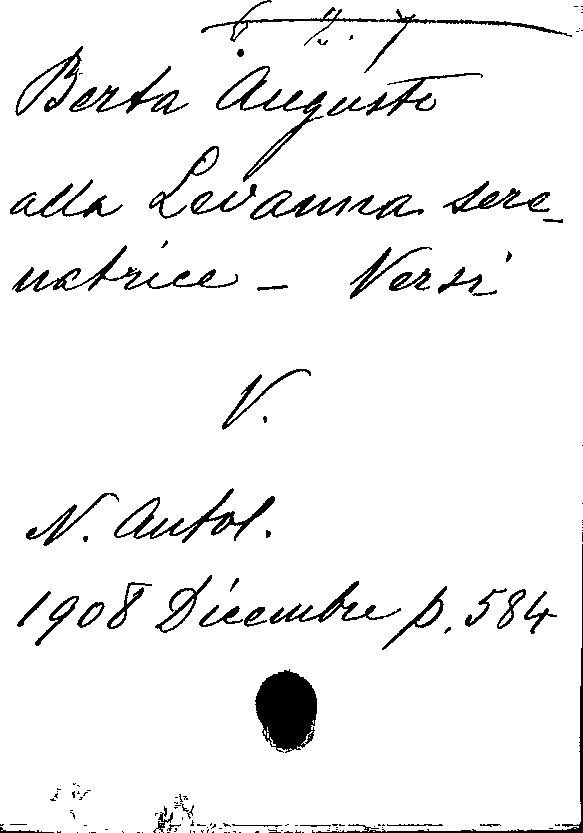 Berta Augusto
alla Levanna sere-
natrice - Versi
V.
N. Antol.
1908 Dicembre p. 584